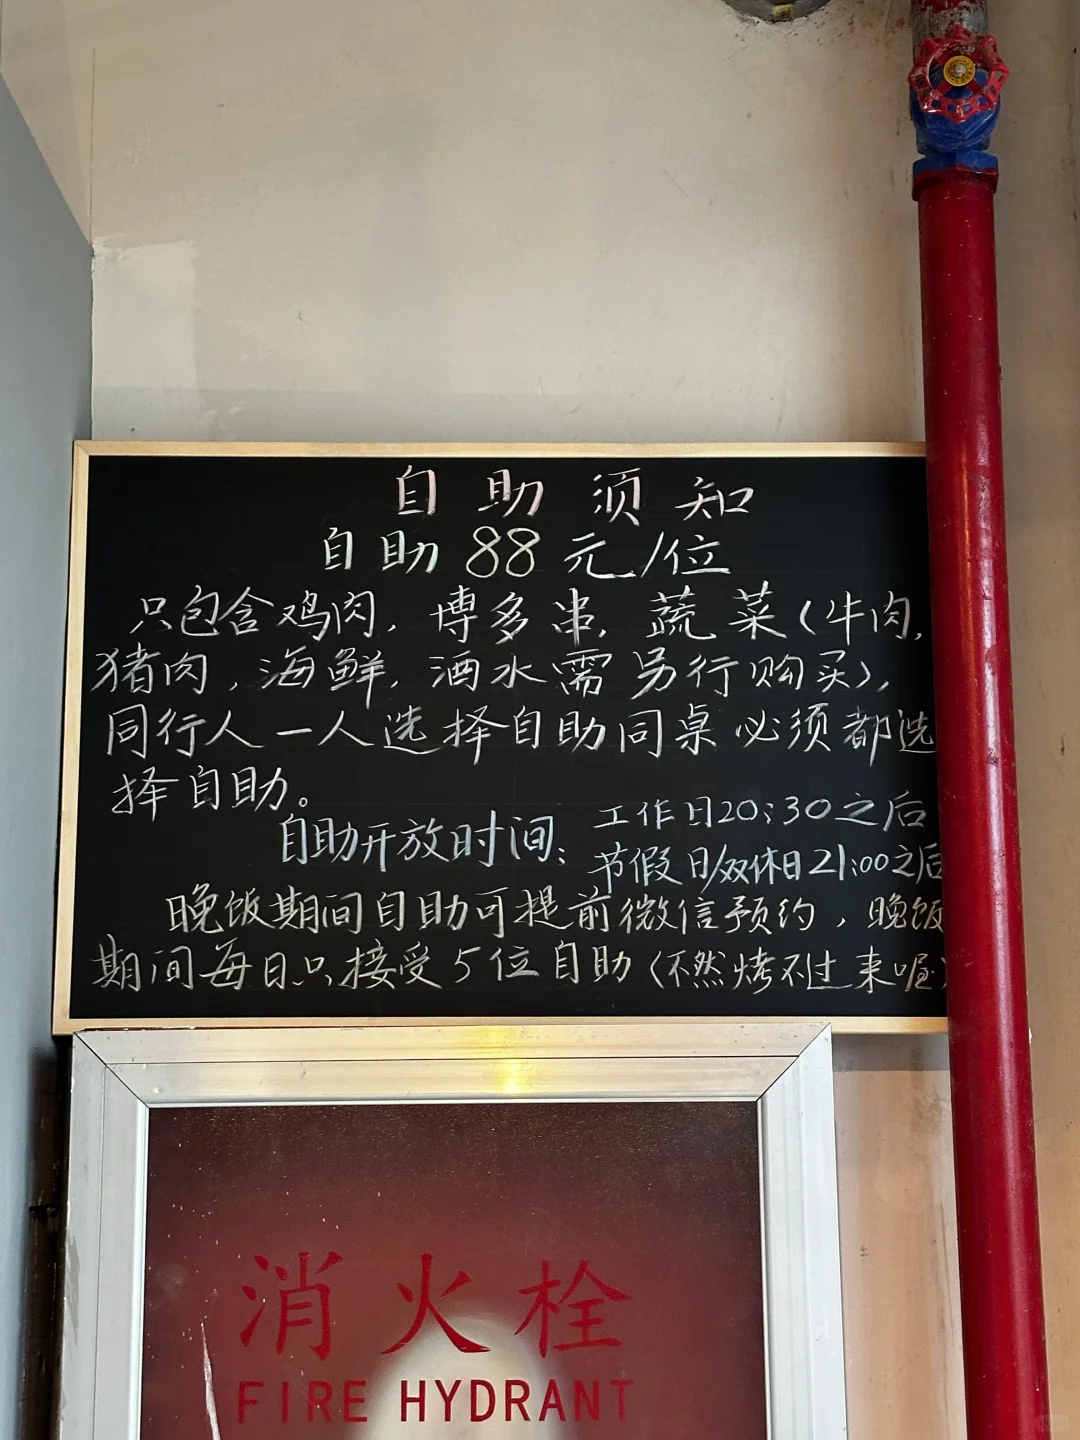 自助须知
自助88元/位
只包含鸡肉，博多串，蔬菜（牛肉，
猪肉，海鲜，酒水需另行购买），
同行人一人选择自助同桌必须都选
择自助。
自助开放时间：
工作日20:30之后
节假日/双休日21:00之后
晚饭期间自助可提前微信预约，晚饭
期间每日只接受5位自助（不然烤不过来喔）
消火栓
FIRE HYDRANT